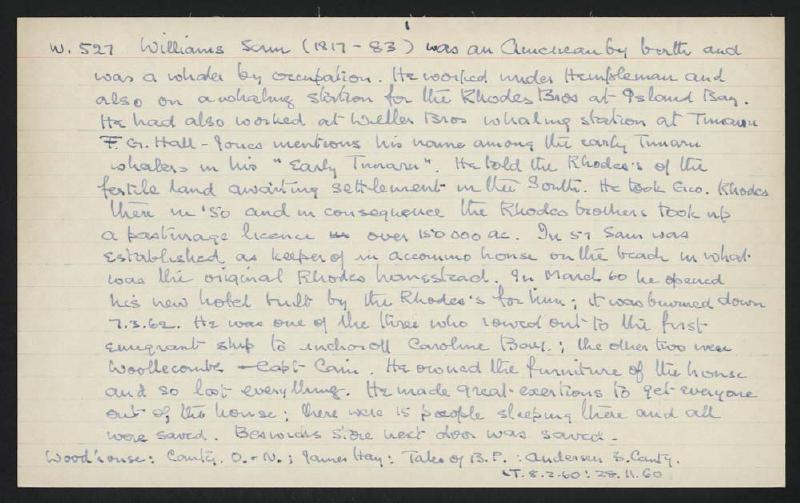 W. 527 Williams Sam (1817 - 83) was an American by birth and
was a whaler by occupation. He worked under Hempleman and
also on a whaling station for the Rhodes Bros at Island Bay.
He had also worked at Weller Bros whaling station at Timaru
F. G. Hall-Jones mentions his name among the early Timaru
whalers in his "Early Timaru". He told the Rhodes's of the
fertile land awaiting settlement in the South. He took Geo. Rhodes
there in '50 and in consequence the Rhodes brothers took up
a pasturage licence over 150 000 ac. In 57 Sam was
established as keeper of an accommo house on the beach in what
was the original Rhodes homestead. In March 60 he opened
his new hotel built by the Rhodes's for him; it was burned down
7.3.62. He was one of the three who rowed out to the first
emigrant ship to anchor off Caroline Bay.; the other two were
Woollecombe - Capt Cain. He owned the furniture of the house
and so lost everything. He made great exertions to get everyone
out of the house; there were 15 people sleeping there and all
were saved. Beswicks store next door was saved.
Woodhouse: Canty. O.-N.; James Hay: Tales of B.P.: Andersen S. Canty.
LT. 8.2.60: 28.11.60